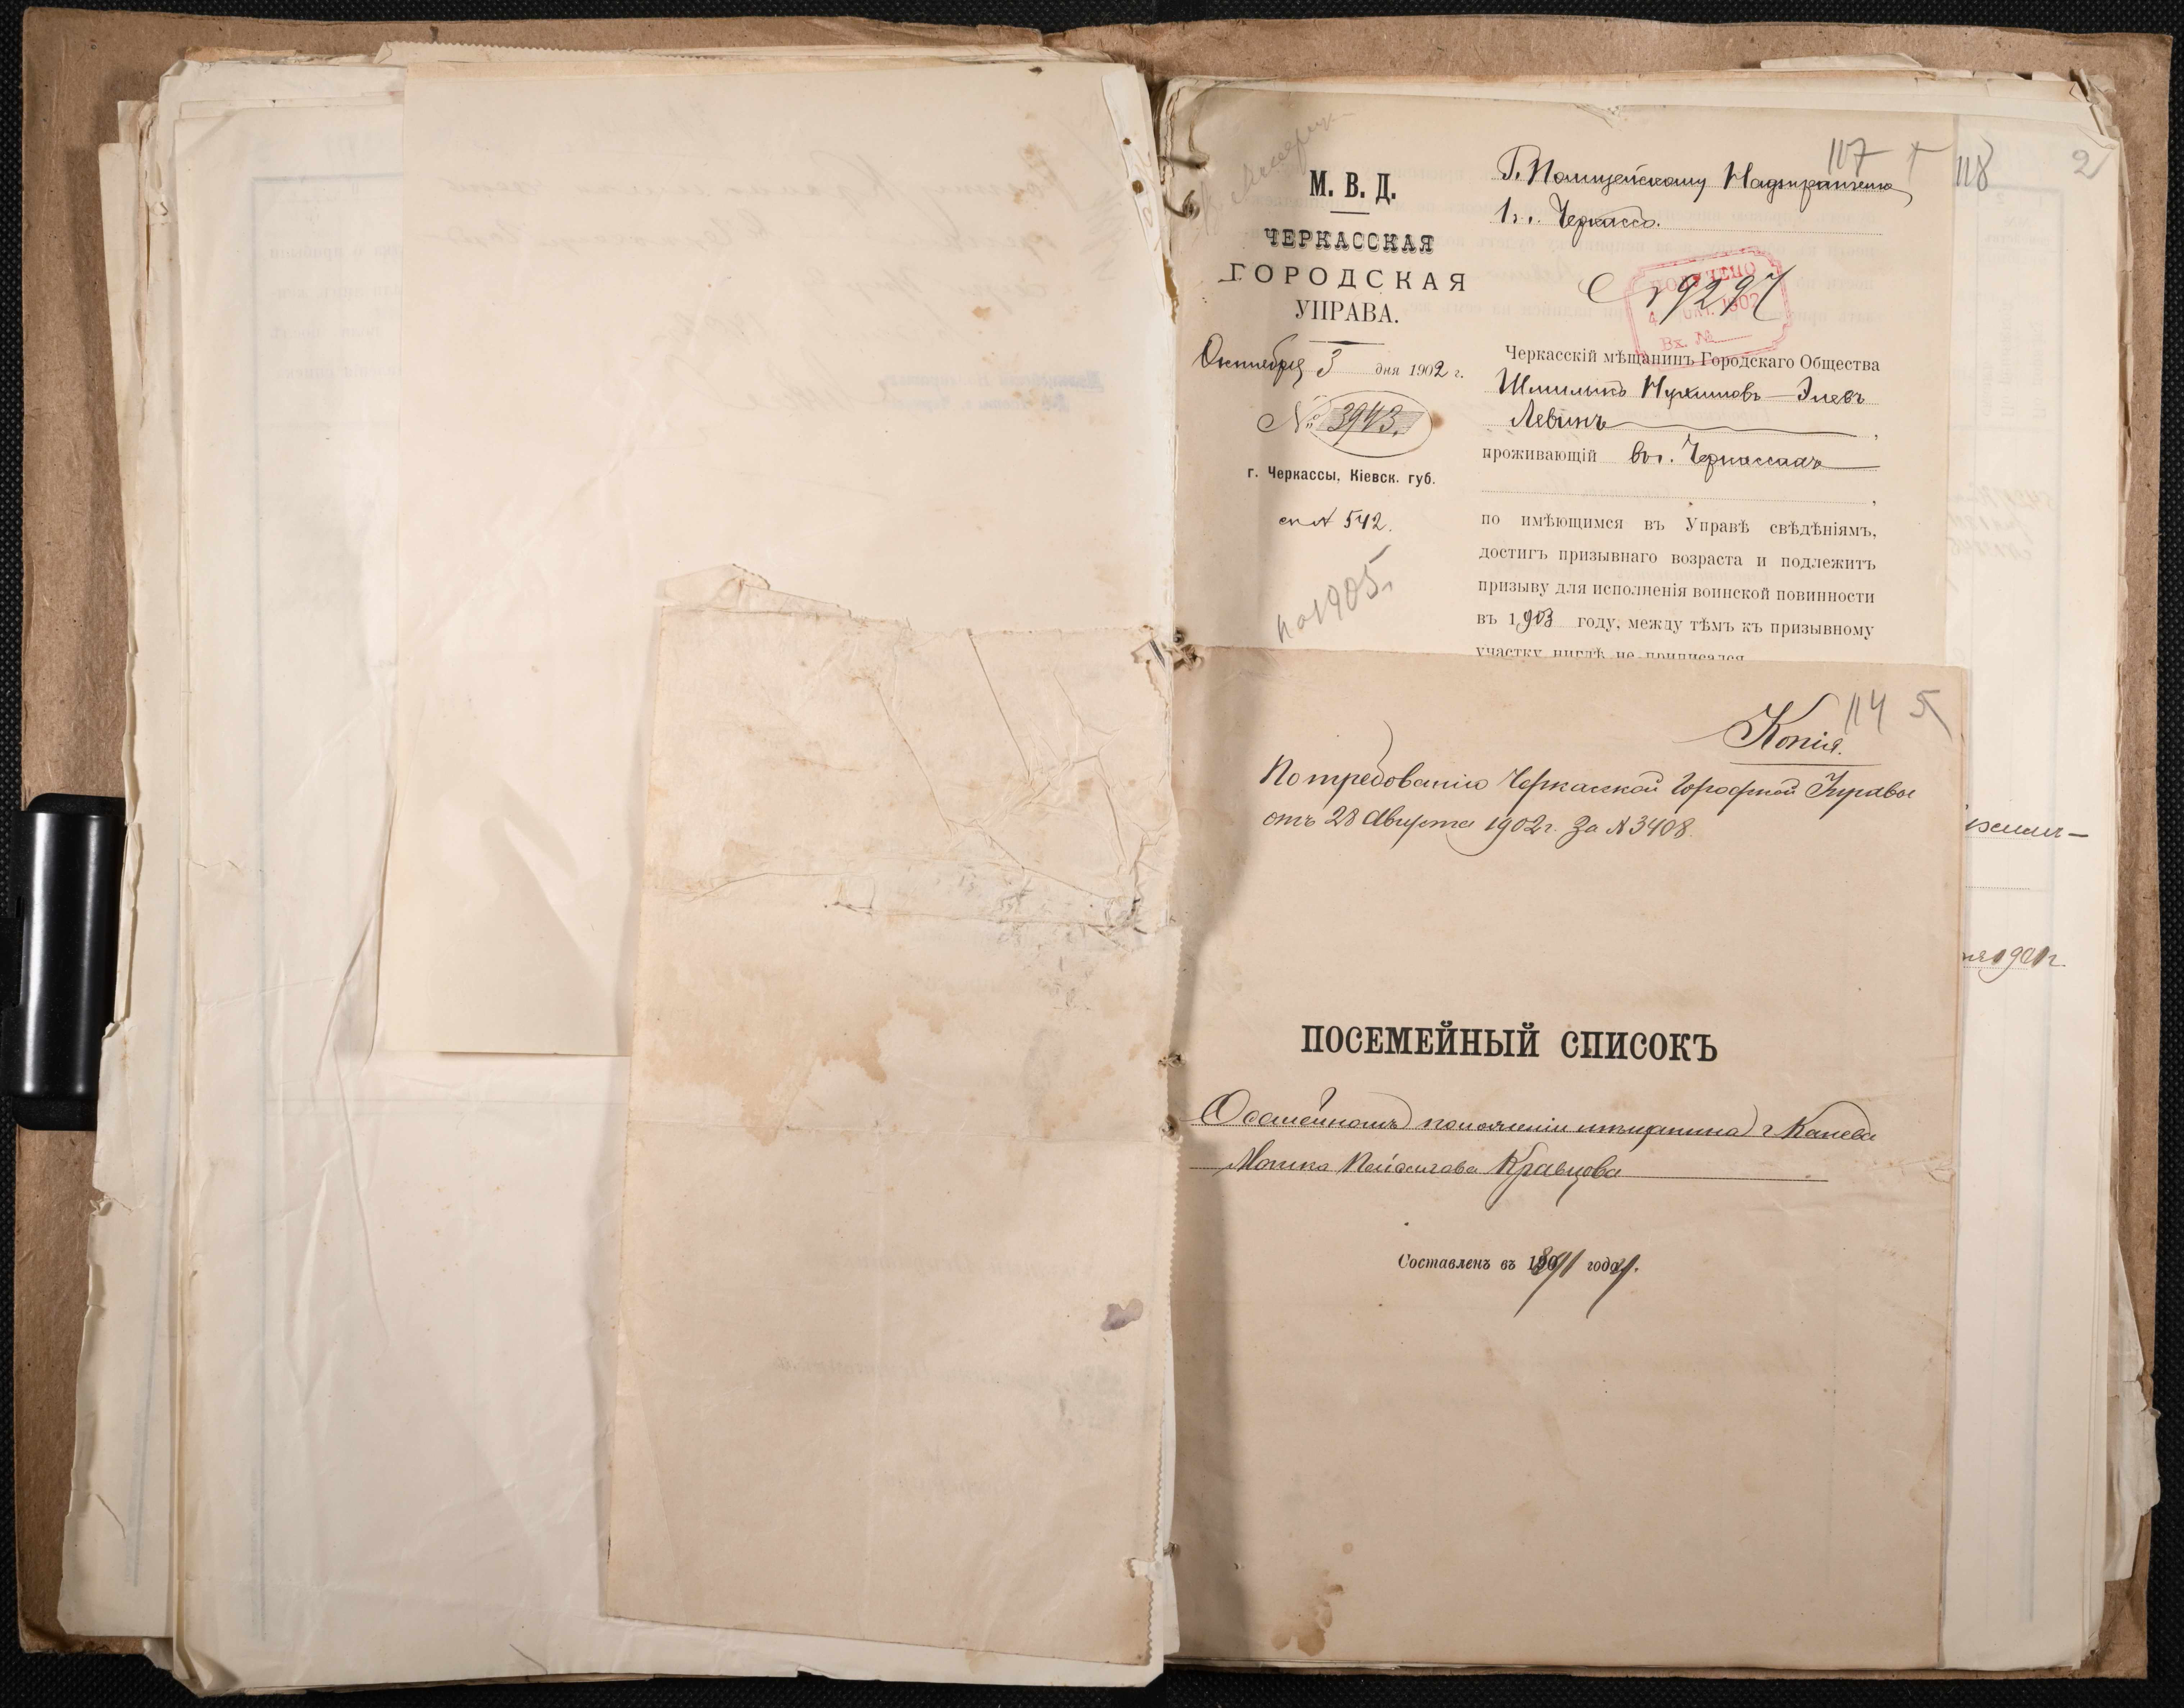 М. В. Д.
ЧЕРКАССКАЯ
ГОРОДСКАЯ
УПРАВА.
Октября 3 дня 1902 г.
№ 3943.
г. Черкассы, Кіевск. губ.
сп № 542.
по 1905
107
Г. Полицейскому Надзирателю
1 ч. г. Черкассъ.
ПОЛУЧЕНО
4 ОКТ. 1902
Вх. №
9297
Черкасскій мѣщанинъ Городскаго Общества
Шмилько Нухимовъ-Элевъ
Левинъ,
проживающій въ г. Черкассахъ,
по имѣющимся въ Управѣ свѣдѣніямъ,
достигъ призывнаго возраста и подлежитъ
призыву для исполненія воинской повинности
въ 1903 году, между тѣмъ къ призывному
участку нигдѣ не приписался
118 2
1901г.
114 5
Копія.
По требованію Черкасской Городской Управы
отъ 28 Августа 1902г. За № 3408.
ПОСЕМЕЙНЫЙ СПИСОКЪ
О семейномъ положеніи мѣщанина г Канева
Мошка Кравцова
Составленъ въ 1891 году.